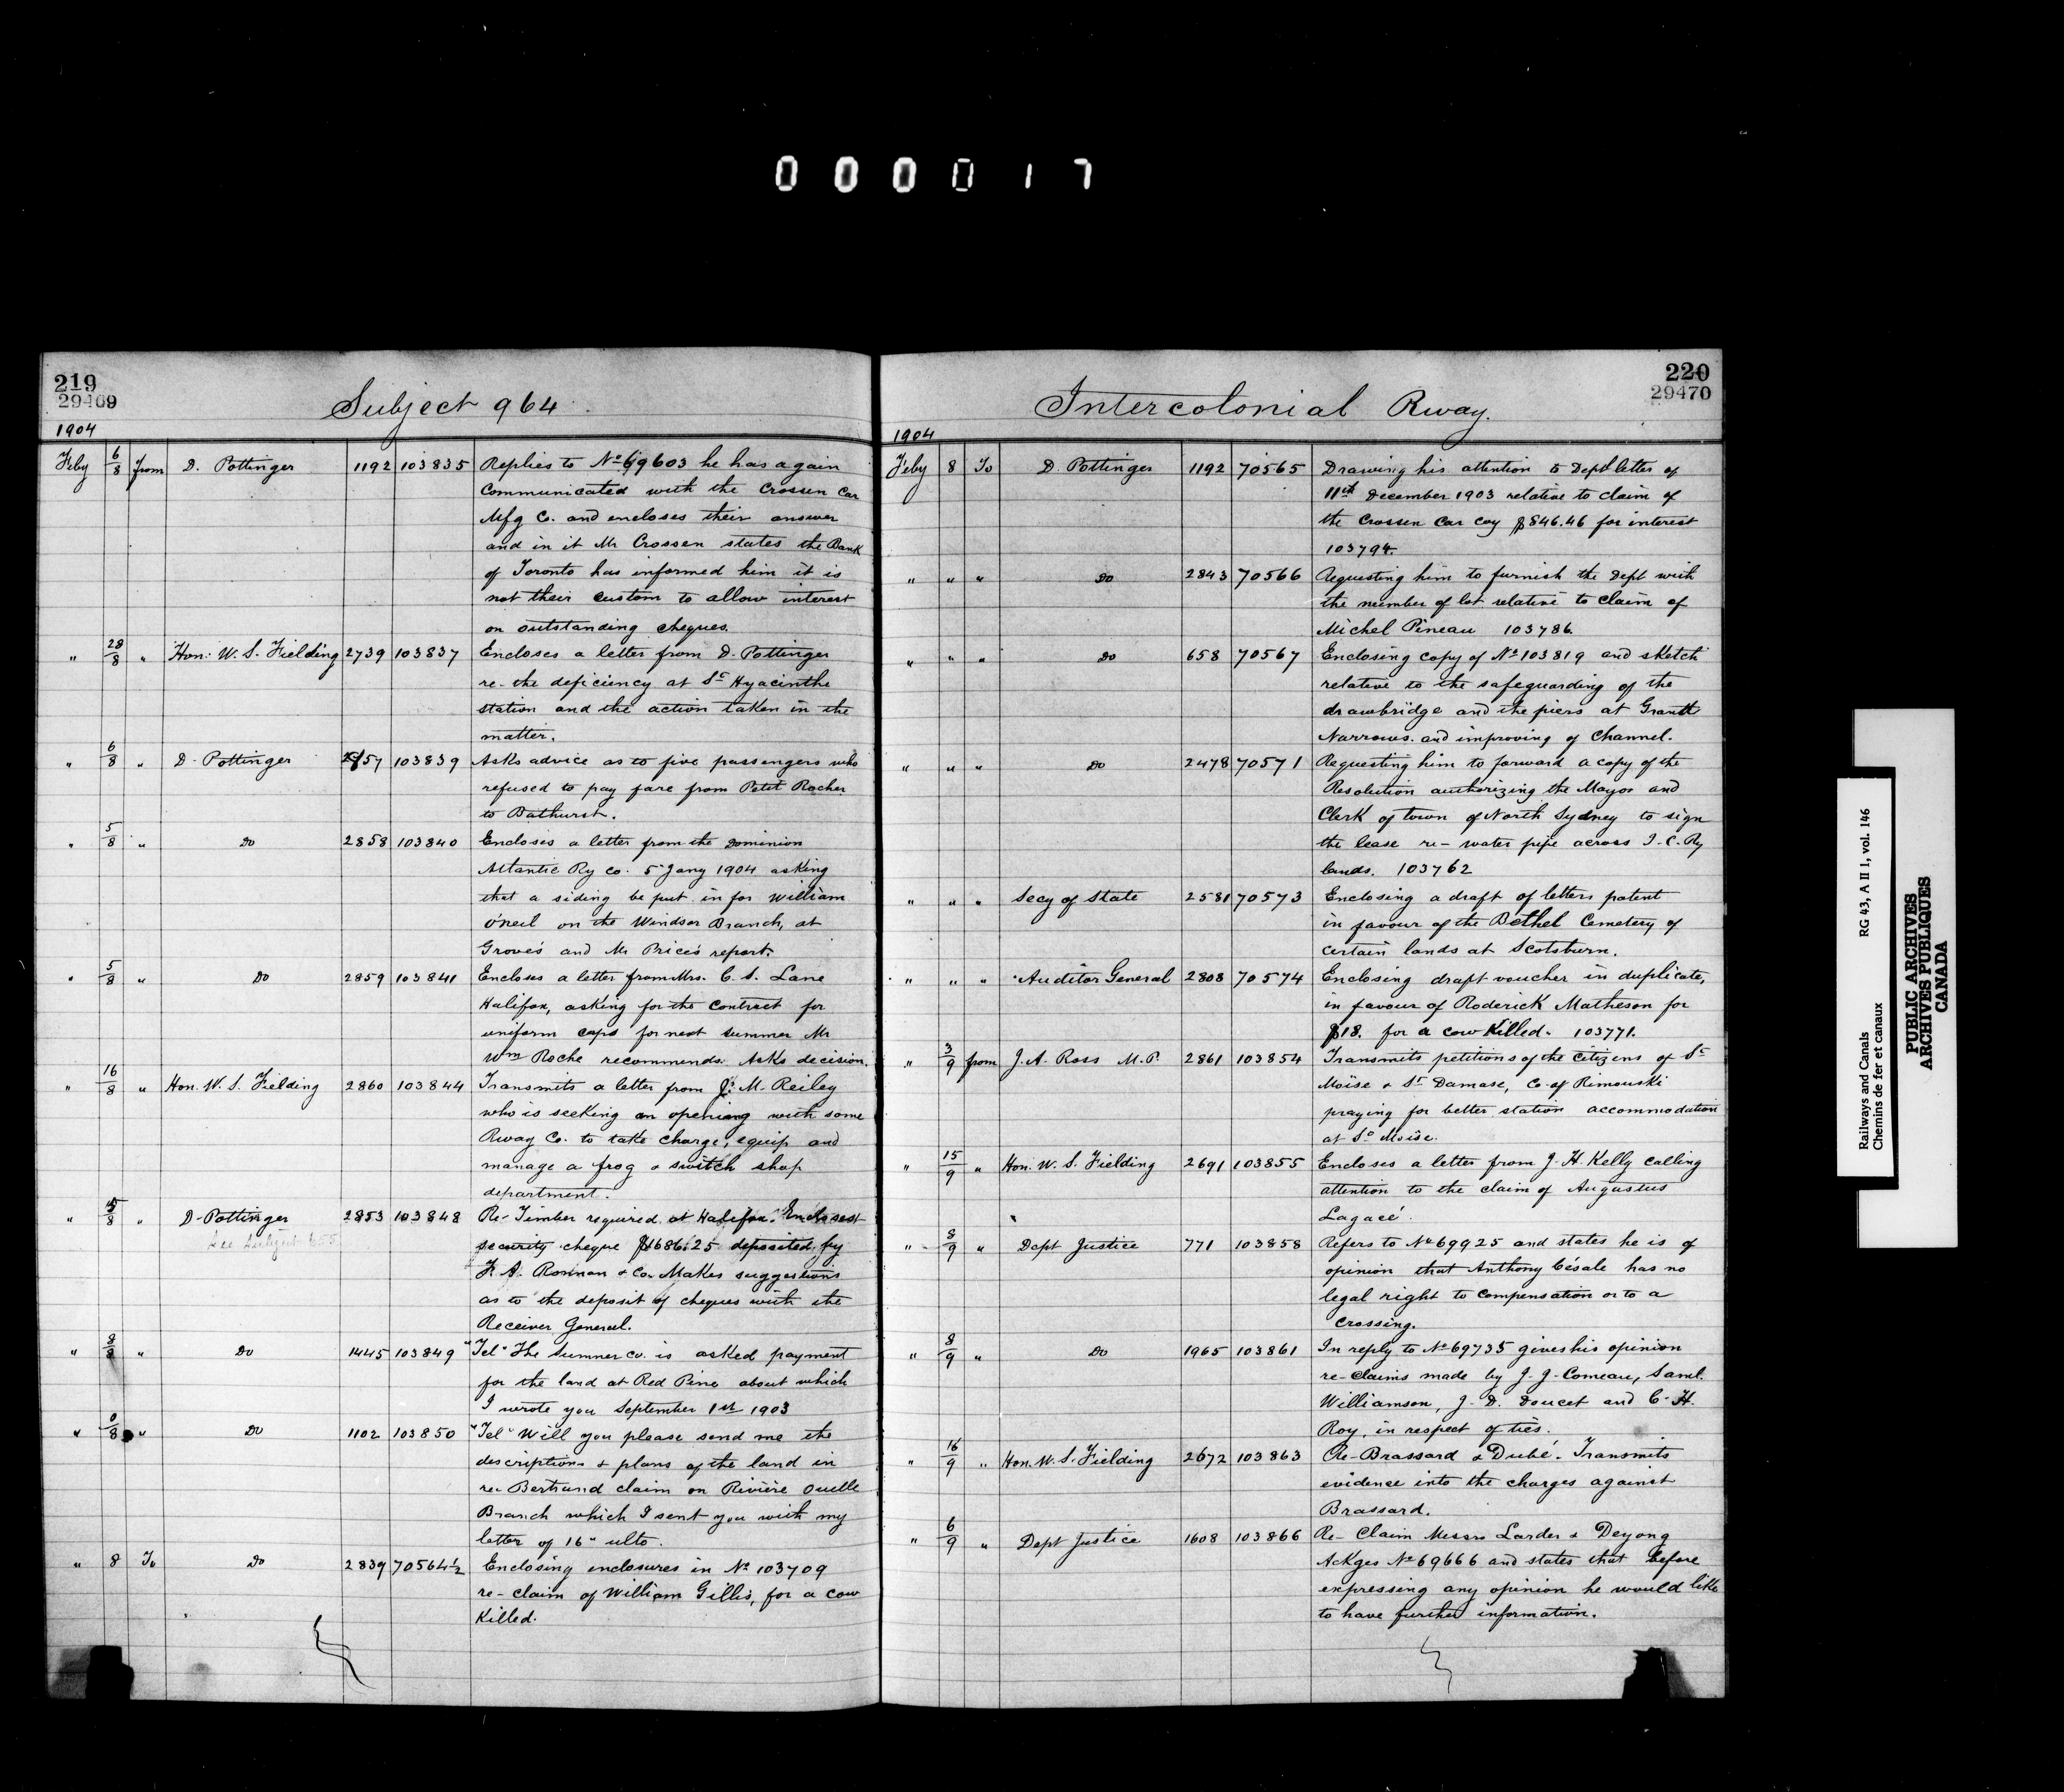 000017
219
29469
Subject 964
1904
Feby 6/8 from D. Pottinger 1192 103835 Replies to No 69603 he has again
communicated with the Crossen Car
Mfg Co. and encloses their answer
and in it Mr Crossen states the Bank
of Toronto has informed him it is
not their custom to allow interest
on outstanding cheques.
" 28/8 " Hon. W. S. Fielding 2739 103837 Encloses a letter from D. Pottinger
re- the deficiency at St Hyacinthe
station and the action taken in the
matter.
" 6/8 " D. Pottinger 103839 Asks advice as to five passengers who
refused to pay fare from Petit Rocher
to Bathurst.
" 5/8 " Do 2858 103840 Encloses a letter from the Dominion
Atlantic Ry Co. 5" Jany 1904 asking
that a siding be put in for William
O'Neil on the Windsor Branch, at
Grove's and Mr Price's report.
" 5/8 " Do 2859 103841 Encloses a letter from Mrs. C. S. Lane
Halifax, asking for the contract for
uniform caps for next summer Mr
Wm Roche recommends. Asks decision.
" 16/8 " Hon. W. S. Fielding 2860 103844 Transmits a letter from J. M. Reiley
who is seeking an opening with some
Rway Co. to take charge, equip and
manage a frog & switch shop
department.
" 5/8 " D. Pottinger 2853 103848 Re- Timber required at Halifax. Encloses
See Subject 655
security cheque $1686.25 deposited by
& Co. Makes suggestions
as to the deposit of cheques with the
Receiver General.
" 8/8 " Do 1445 103849 "Tel" The Sumner Co. is asked payment
for the land at Red Pine about which
I wrote you September 1st 1903
" 8 " Do 1102 103850 "Tel" Will you please send me the
descriptions & plans of the land in
re- Bertrand claim on Rivière Ouelle
Branch which I sent you with my
letter of 16" ulto.
" 8 To Do 2839 70564½ Enclosing enclosures in No 103709
re- claim of William Gillis, for a cow
killed.
220
29470
Intercolonial Rway.
1904
Feby 8 To D. Pottinger 1192 70565 Drawing his attention to Dept letter of
11th December 1903 relative to claim of
the Crossen Car Coy $846.46 for interest
103794.
" " " Do 2843 70566 Requesting him to furnish the Dept with
the number of lot relative to claim of
Michel Pineau 103786.
" " " Do 658 70567 Enclosing copy of No 103819 and sketch
relative to the safeguarding of the
drawbridge and the piers at Grand
Narrows. and improving of Channel.
" " " Do 2478 70571 Requesting him to forward a copy of the
Resolution authorizing the Mayor and
Clerk of town of North Sydney to sign
the lease re- water pipe across I. C. Ry
lands. 103762
" " " Secy of State 2581 70573 Enclosing a draft of letters patent
in favour of the Bethel Cemetery of
certain lands at Scotsburn.
" " " Auditor General 2808 70574 Enclosing draft voucher in duplicate,
in favour of Roderick Matheson for
$18. for a cow killed. 103771.
" 3/9 from J. A. Ross M.P. 2861 103854 Transmits petitions of the citizens of St
Moïse & St Damase, Co. of Rimouski
praying for better station accommodation
at St Moïse.
" 15/9 " Hon. W. S. Fielding 2691 103855 Encloses a letter from J. H. Kelly calling
attention to the claim of Augustus
Lagacé.
" 8/9 " Dept Justice 771 103858 Refers to No 69925 and states he is of
opinion that Anthony Césale has no
legal right to compensation or to a
crossing.
" 8/9 " Do 1965 103861 In reply to No 69735 gives his opinion
re- claims made by J. J. Comeau, Saml.
Williamson, J. D. Doucet and C. H.
Roy, in respect of ties.
" 16/9 " Hon. W. S. Fielding 2672 103863 Re- Brassard & Dubé. Transmits
evidence into the charges against
Brassard.
" 6/9 " Dept Justice 1608 103866 Re- Claim Messrs Larder & Deyong
Ackges No 69666 and states that before
expressing any opinion he would like
to have further information.
Railways and Canals RG 43, A II 1, vol. 146
Chemins de fer et canaux
PUBLIC ARCHIVES
ARCHIVES PUBLIQUES
CANADA